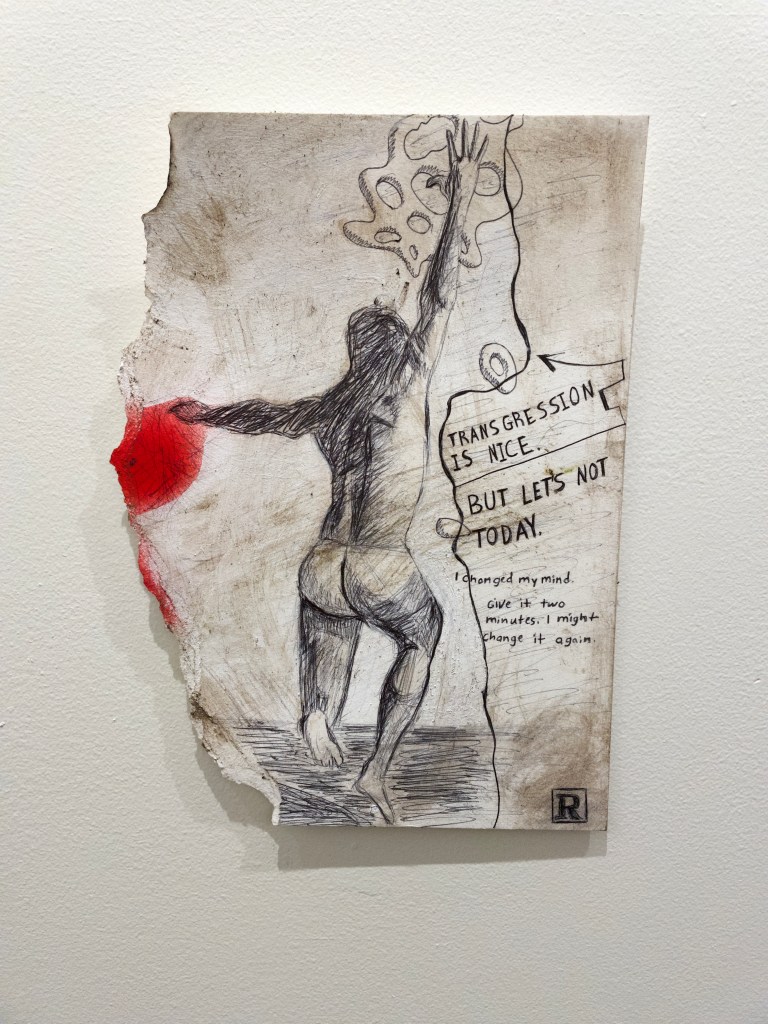 TRANSGRESSION
IS NICE.
BUT LET'S NOT
TODAY.
I changed my mind.
Give it two
minutes. I might
change it again.
R